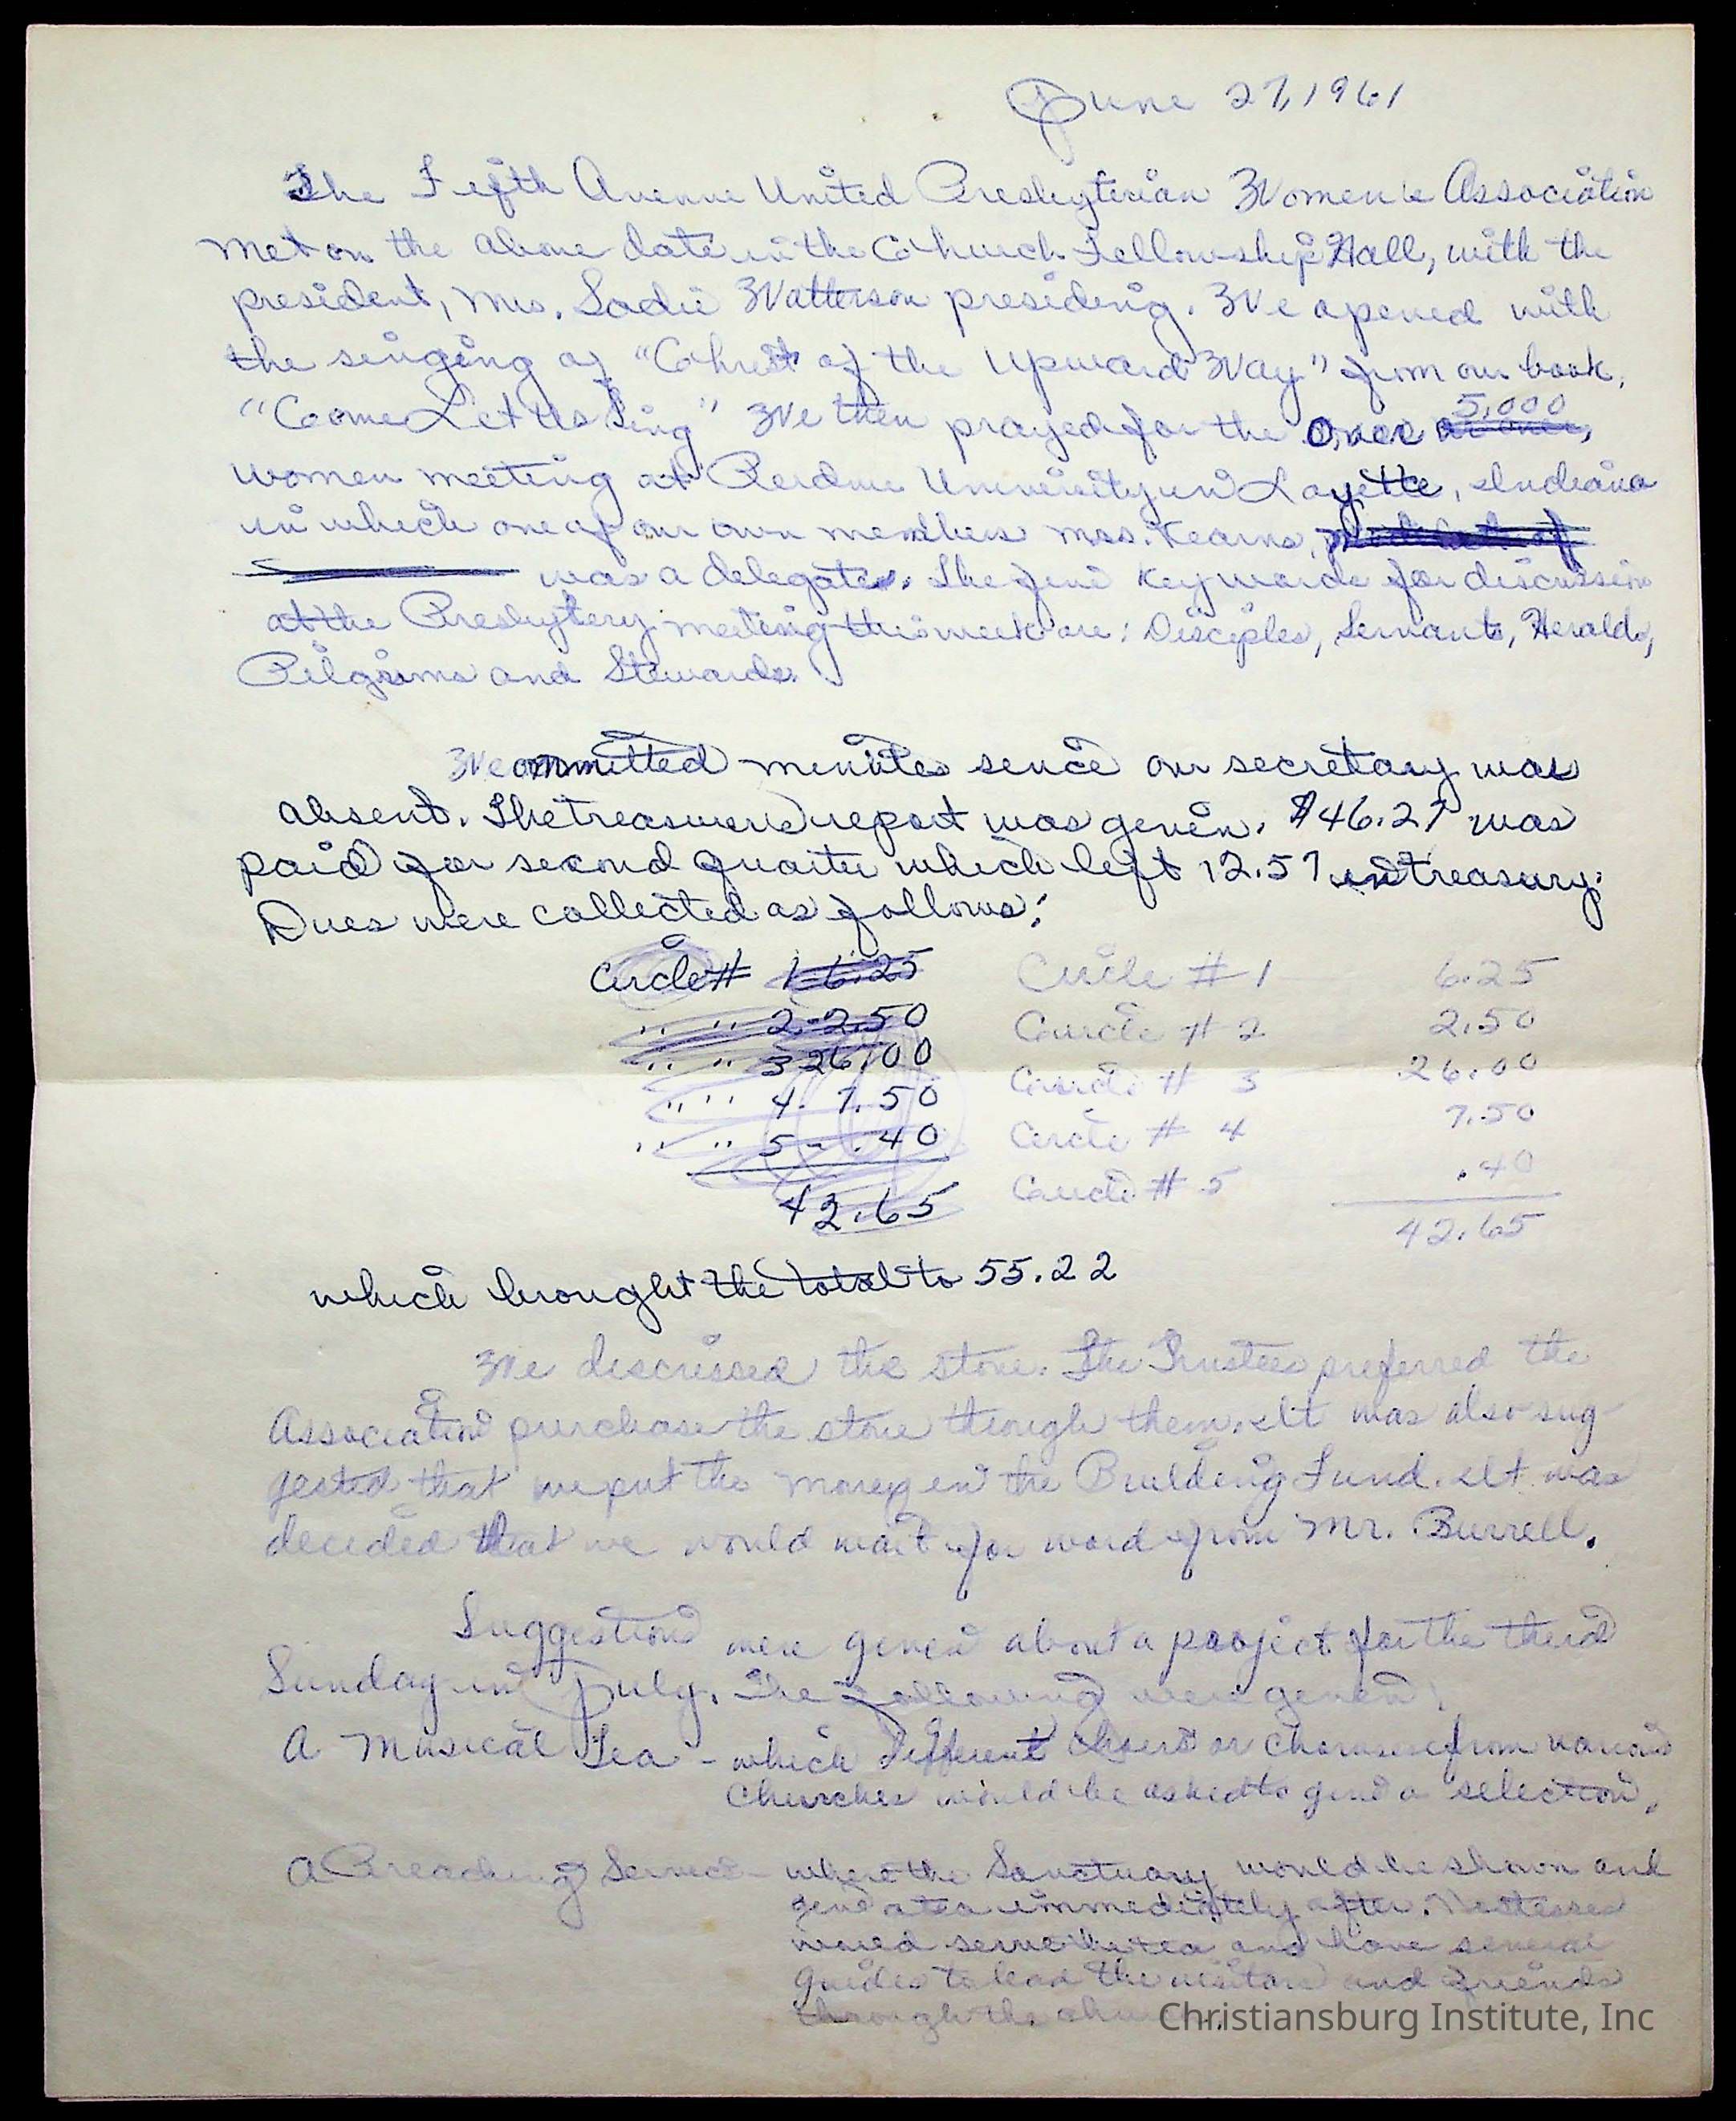 June 27, 1961
The Fifth Avenue United Presbyterian Women's Association
met on the above date in the Church Fellowship Hall, with the
president, Mrs. Sadie Watterson presiding. We opened with
the singing of "Christ of the Upward Way" from our book,
"Come Let Us Sing" We then prayed for the over 5,000
women meeting at Perdue University in Layette, Indiana
in which one of our own members Mrs. Kearns,
was a delegate. The five key words for discussion
at the Presbytery meeting this week are: Disciples, Servants, Heralds,
Pilgrims and Stewards.
We ommitted minutes since our secretary was
absent. The treasurer's report was given. $46.27 was
paid for second quarter which left 12.57 in treasury.
Dues were collected as follows:
Circle # 1 6.25 Circle # 1 6.25
" " 2 - 2.50 Circle # 2 2.50
" " 3 26.00 Circle # 3 26.00
" " 4. 7.50 Circle # 4 7.50
" " 5 - .40 Circle # 5 .40
42.65 42.65
which brought the total to 55.22
We discussed the stove. The Trustees preferred the
Association purchase the stove through them. It was also sug-
gested that we put the money in the Building Fund. It was
decided that we would wait for word from Mr. Burrell.
Suggestions were given about a project for the third
Sunday in July. The following were given:
A Musical Tea - which different choirs or choruses from various
Churches would be asked to give a selection.
A Preaching Service - where the Sanctuary would be shown and
give a tea immediately after. Hostesses
would serve the tea and have several
guides to lead the visitors and friends
through the
Christiansburg Institute, Inc